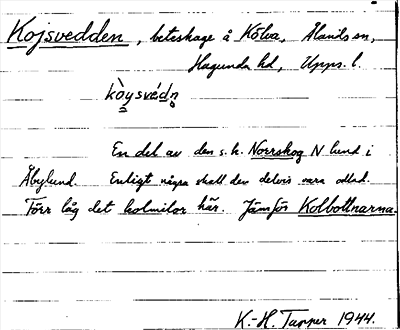 Kojsvedden, beteshage å Kölva, Ålands sn,
Hagunda hd, Upps. l.
kòysvédn̥
En del av den s. k. Norrskog N lund i
Åbylund. Enligt några skall den delvis vara odlad.
Förr låg det kolmilor här. Jämför Kolbottnarna.
K.-H. Tapper 1944.